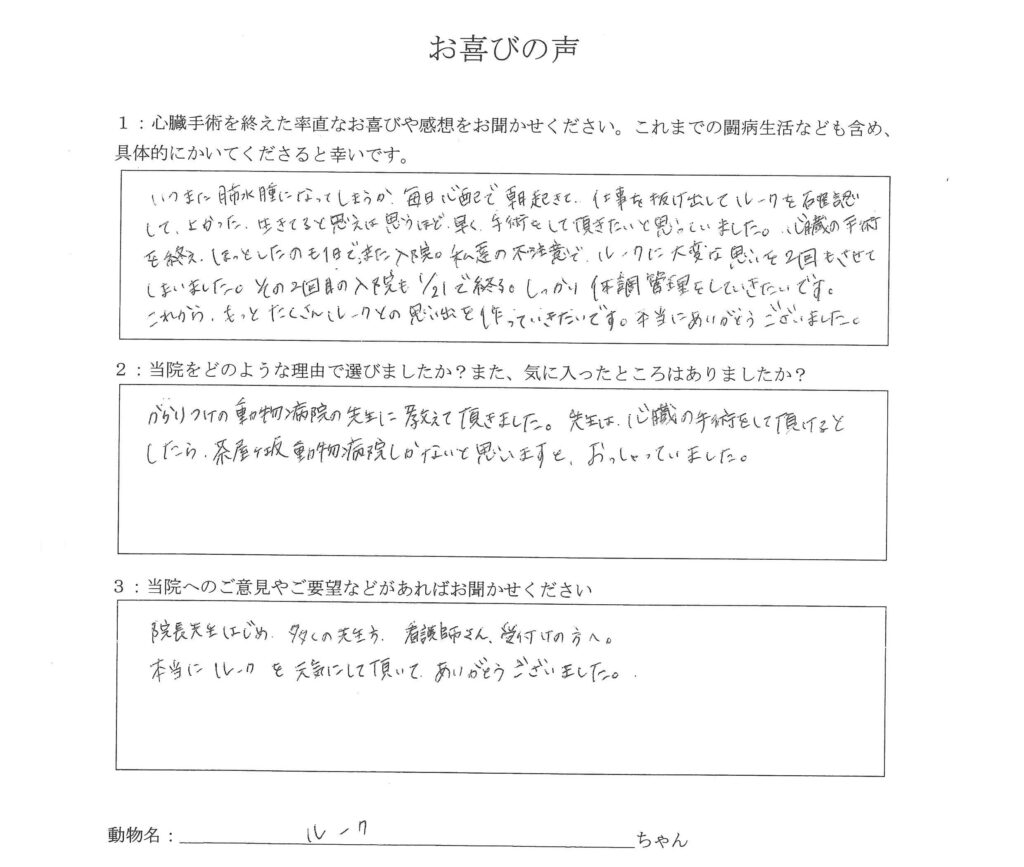 お喜びの声
1：心臓手術を終えた率直なお喜びや感想をお聞かせください。これまでの闘病生活なども含め、
具体的にかいてくださると幸いです。
いつまた肺水腫になってしまうか、毎日心配で朝起きて、仕事を抜け出してルークを確認
して、よかった、生きてると思えば思うほど、早く、手術をして頂きたいと思っていました。心臓の手術
を終え、ほっとしたのも1日で、また入院。私達の不注意で、ルークに大変な思いを2回もさせて
しまいました。その2回目の入院も1/21で終る。しっかり体調管理をしていきたいです。
これから、もっとたくさんルークとの思い出を作っていきたいです。本当にありがとうございました。
2：当院をどのような理由で選びましたか？また、気に入ったところはありましたか？
かかりつけの動物病院の先生に教えて頂きました。先生は、心臓の手術をして頂けると
したら、茶屋ヶ坂動物病院しかないと思いますと、おっしゃっていました。
3：当院へのご意見やご要望などがあればお聞かせください
院長先生はじめ、多くの先生方、看護師さん、受付けの方へ。
本当にルークを元気にして頂いて、ありがとうございました。
動物名：ルークちゃん